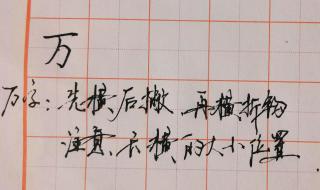 万
万字:先横,后撇,再横折钩
注意:长横,的大小位置